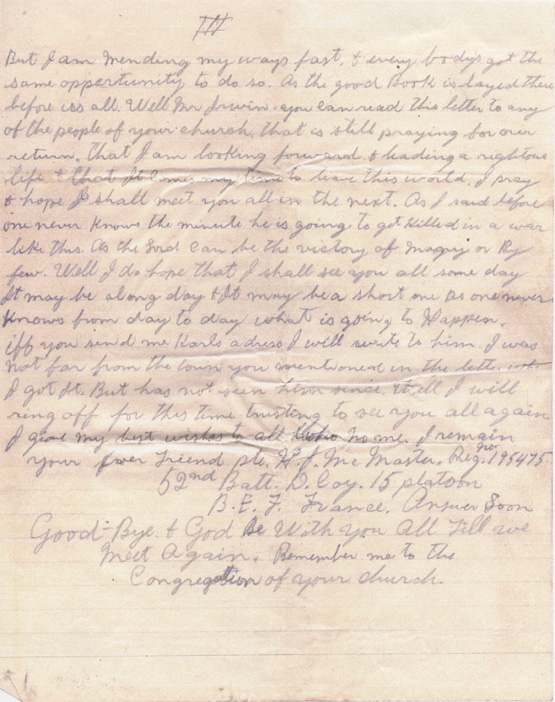 III
But I am Mending my ways fast. & every body's got the
same opportunity to do so. As the good Book is layed there
before iss all. Well Mr Irwin you can read this letter to any
of the people of your church, that is still praying for our
return. that I am looking forward & leading a rightous
life & that If I me my time to leave this world. I pray
& hope I shall meet you all in the next. As I said before
one never Knows the minute he is going to get Killed in a war
like this. As the Lord Can be the victory of Magny or By
few. Well I do hope that I shall see you all some day
It may be along day & It may be a short one As one never
Knows from day to day what is going to Happen.
iff you send me Karls adress I will write to him. I was
Not far from the town you mentioned in the letter when
I got It. But has not seen him since. Well I will
ring off for this time trusting to see you all again
I give my best wishes to all who No me. I remain
your friend Pte. H. J. Mc Master. Reg. No 195475
52nd Batt. D. Coy. 15 platoon
B. E. F. France. Answer Soon
Good-Bye. & God Be With You All Till we
Meet Again. Remember me to the
Congregation of your church.